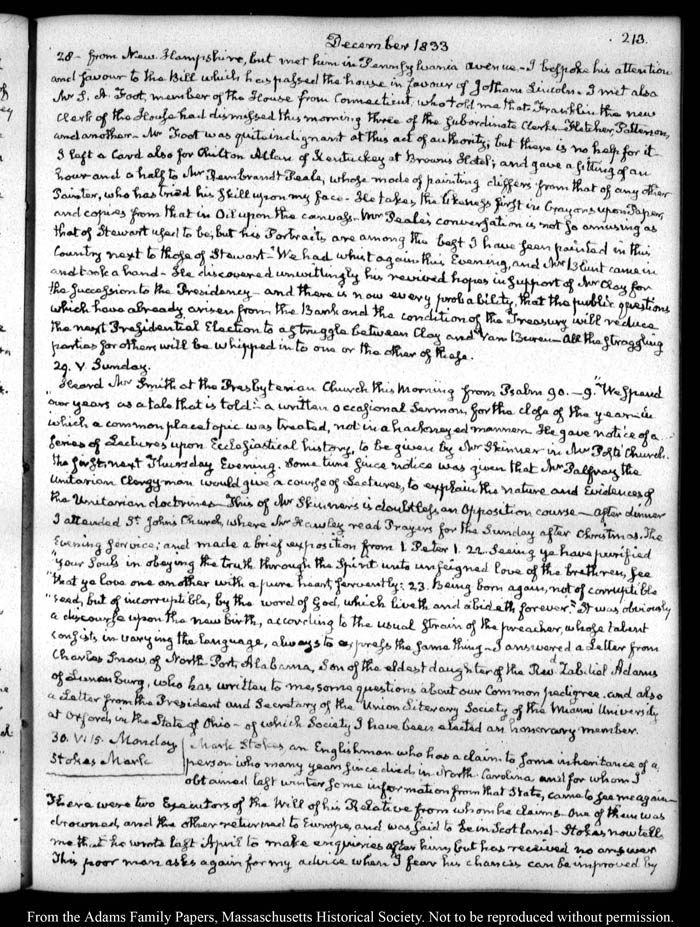 December 1833
213.
28- from New Hampshire, but met him in Pennsylvania avenue - I bespoke his attention
and favour to the Bill which has passed the house in favour of Jotham Lincoln. I met also
Mr S. A. Foot, member of the House from Connecticut, who told me that Franklin the new
Clerk of the House had dismissed this morning three of the subordinate Clerks - Fletcher, Patterson,
and another - Mr Foot was quite indignant at this act of authority; but there is no help for it
I left a Card also for Chilton Allan of Kentuckey at Browns Hotel; and gave a sitting of an
hour and a half to Mr Rembrandt Peale, whose mode of painting differs from that of any other
Painter, who has tried his skill upon my face - He takes the likeness first in Crayons upon Paper,
and copies from that in Oil upon the canvass. Mr Peale's conversation is not so amusing as
that of Stewart used to be, but his Portraits are among the best I have seen painted in this
Country next to those of Stewart - We had whist again this Evening, and Mr Blunt came in
and took a hand - He discovered unwittingly his revived hopes in support of Mr Clay for
the succession to the Presidency - and there is now every probability, that the public questions
which have already arisen from the Bank and the condition of the Treasury will reduce
the next Presidential Election to a struggle between Clay and Van Buren - All the straggling
parties for others will be whipped in to one or the other of these.
29. V. Sunday.
Heard Mr Smith at the Presbyterian Church this Morning from Psalm 90. - 9. "We spend
"our years as a tale that is told" - a written occasional Sermon, for the close of the year - in
which a common place topic was treated, not in a hackneyed manner. He gave notice of a
series of Lectures upon Ecclesiastical history, to be given by Mr Skinner in Mr Post's Church.
the first, next Thursday Evening. Some time since notice was given that Mr Palfray the
Unitarian Clergyman would give a course of Lectures, to explain the nature and Evidences of
the Unitarian doctrines - This of Mr Skinner's is doubtless an Opposition course - After dinner
I attended St. John's Church, where Mr Hawley read Prayers for the Sunday after Christmas. The
Evening service; and made a brief exposition from 1. Peter 1. 22. Seeing ye have purified
"your Souls in obeying the truth through the Spirit unto unfeigned love of the brethren, see
"that ye love one another with a pure heart, fervently: 23. Being born again, not of corruptible
"seed, but of incorruptible, by the word of God, which liveth and abideth forever." It was obviously
a discourse upon the new birth, according to the usual strain of the preacher, whose talent
consists in varying the language, always to express the same thing - I answered a Letter from
Charles Snow of North Port, Alabama, Son of the eldest daughter of the Revd. Zabdiel Adams
of Lunenburg, who has written to me, some questions about our Common pedigree. and also
a Letter from the President and Secretary of the Union Literary Society of the Miami University
at Oxford, in the State of Ohio - of which Society I have been elected an honorary member.
30. VI. 15. Monday
Mark Stokes an Englishman who has a claim to some inheritance of a
Stokes Mark
person who many years since died in North Carolina and for whom I
obtained last winter some information from that State, came to see me again -
There were two Executors of the Will of his Relative from whom he claims. One of them was
drowned, and the other returned to Europe, and was said to be in Scotland - Stokes now tells
me that he wrote last April to make enquiries after him, but has received no answer
This poor man asks again for my advice when I fear his chances can be improved by
From the Adams Family Papers, Massachusetts Historical Society. Not to be reproduced without permission.